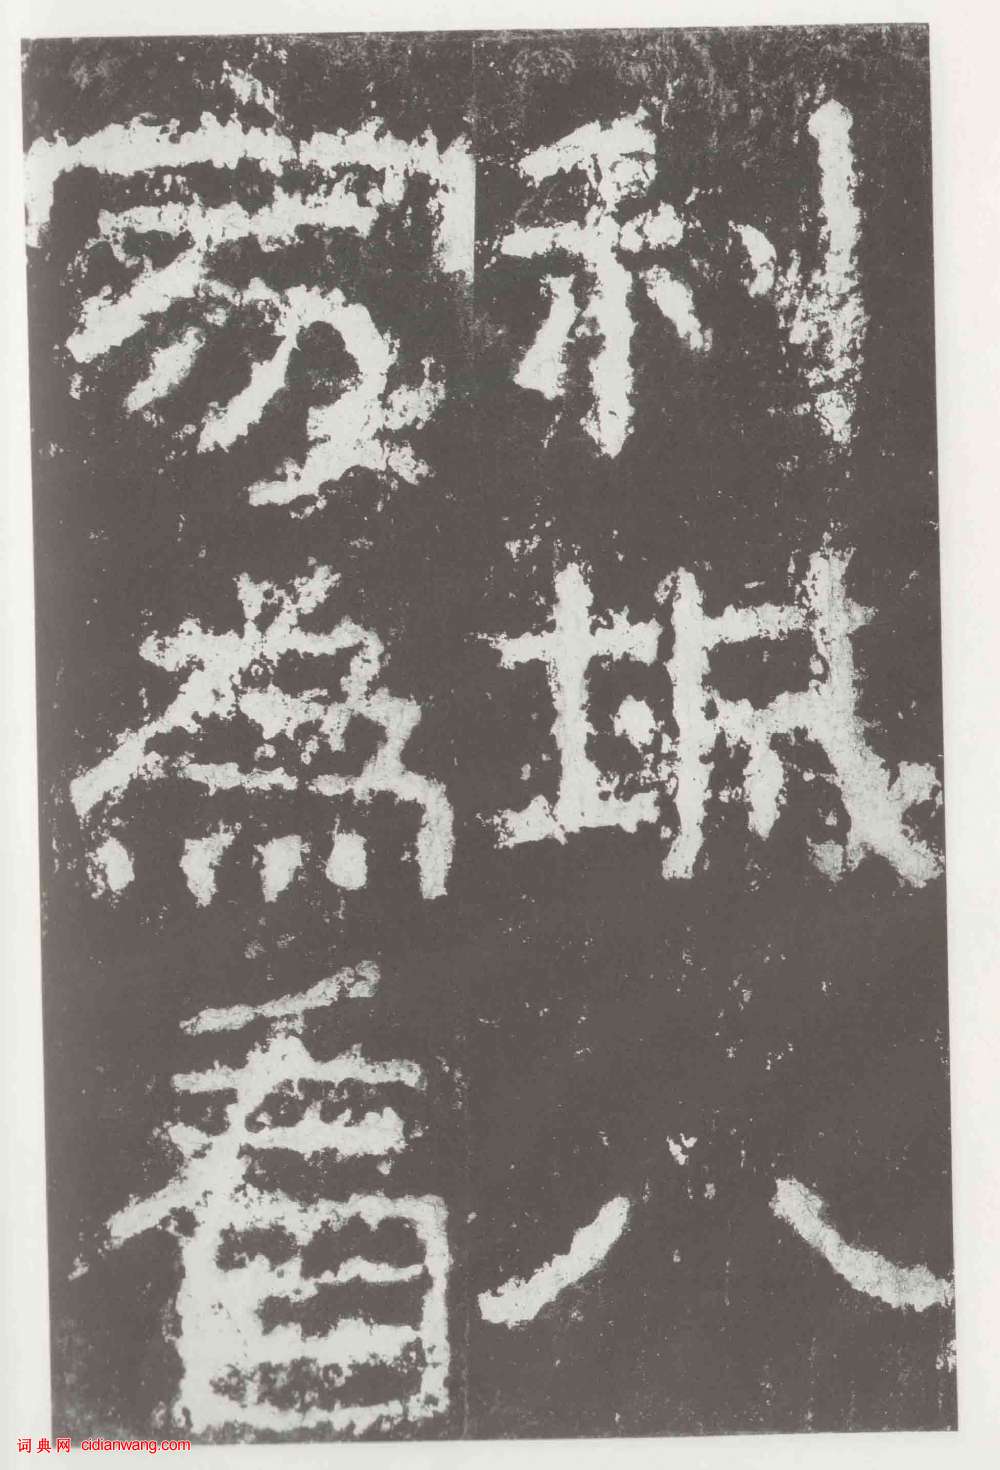 利城八
家為看
词典网 cidianwang.com